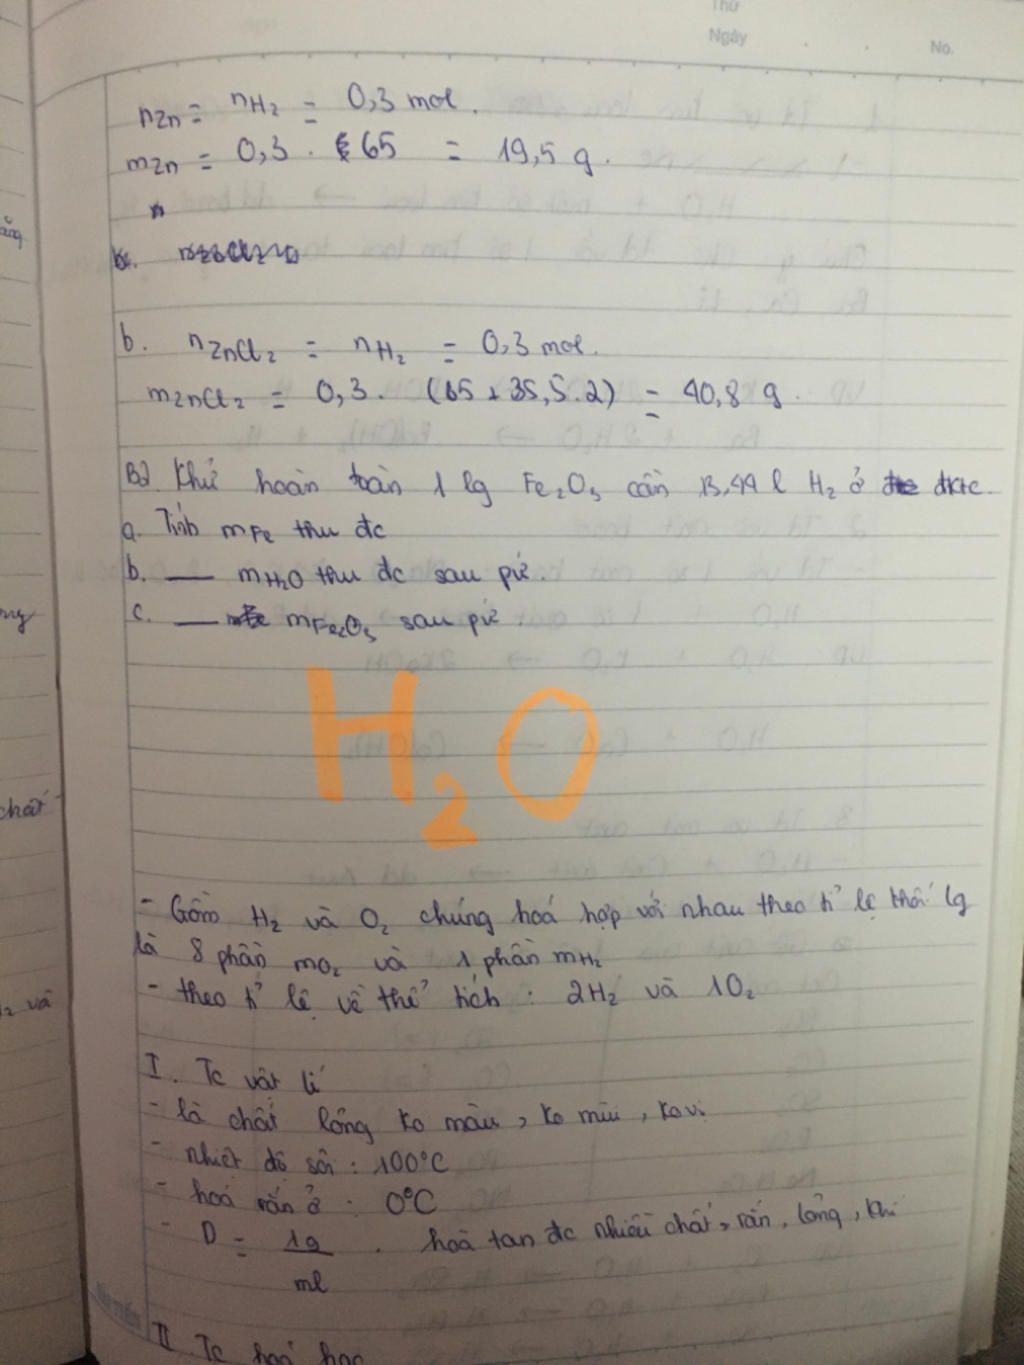 Thứ
Ngày . . No.
nZn = nH₂ = 0,3 mol.
mZn = 0,3 . 65 = 19,5 g.
b. nZnCl₂ = nH₂ = 0,3 mol.
mZnCl₂ = 0,3. (65 + 35,5.2) = 40,8 g.
B2. Khử hoàn toàn 1 lg Fe₂O₃ cần 13,44 l H₂ ở đktc.
a. Tính mFe thu đc
b. — mH₂O thu đc sau pứ.
c. — mFe₂O₃ sau pứ.
H₂O
- Gồm H₂ và O₂ chúng hoá hợp với nhau theo tỉ lệ khối lg
là 8 phần mO₂ và 1 phần mH₂
- theo tỉ lệ về thể tích : 2H₂ và 1O₂
I. Tc vật lí
- là chất lỏng ko màu, ko mùi, ko vị
- nhiệt độ sôi : 100°C
- hoá rắn ở : 0°C
- D = 1g/ml . hoà tan đc nhiều chất, rắn, lỏng, khí
II. Tc hoá học